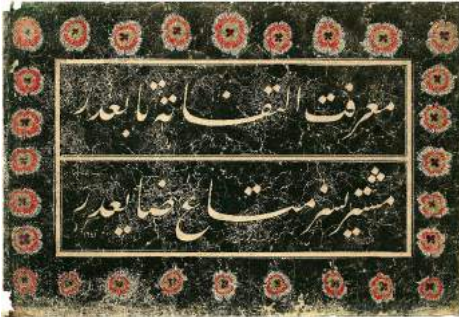 معرفت التفاته تابعدر
مشتریسز متاع ضایعدر